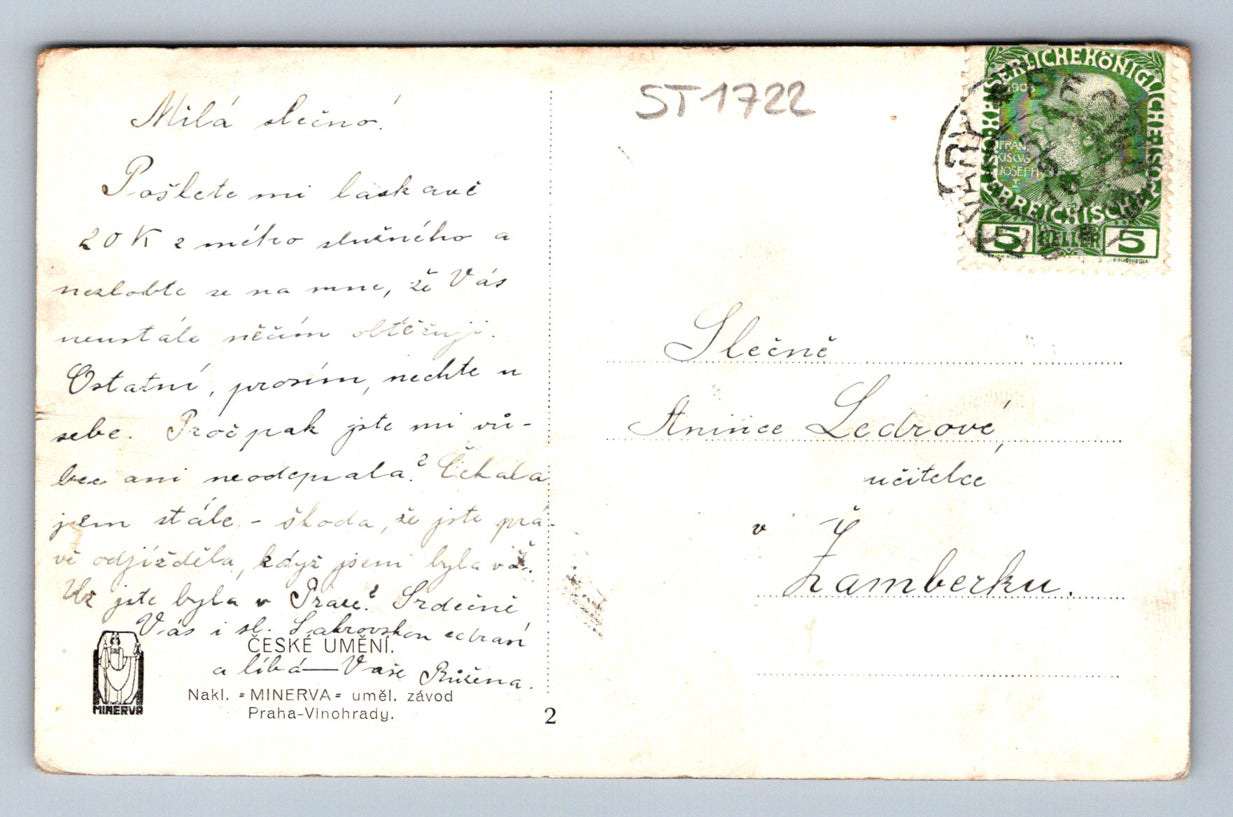 Milá slečno!
Pošlete mi laskavě
20 K z mého služného a
nezlobte se na mne, že Vás
neustále něčím obtěžuji.
Ostatní, prosím, nechte u
sebe. Pročpak jste mi vů-
bec ani neodepsala? Čekala
jsem stále - škoda, že jste prá-
vě odjížděla, když jsem byla
Už jste byla v Praze? Srdečně
Vás i sl. zdraví
a líbá — Vaše Růžena.
ČESKÉ UMĚNÍ.
Nakl. "MINERVA" uměl. závod
Praha-Vinohrady.
MINERVA
2
ST1722
KAISERLICHE KÖNIGLICHE ÖSTERREICHISCHE
1908
FRAN
CISCVS
JOSEPH I
5 HELLER 5
Slečně
Anince Ledrové,
učitelce
v
Žamberku.